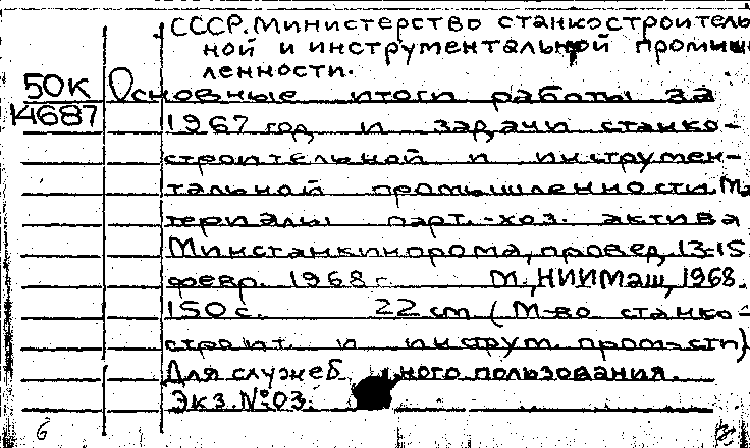 СССР. Министерство станкостроитель
ной и инструментальной промыш
ленности.
50К Основные итоги работы за
14687 1967 год и задачи станко-
строительной и инструмен-
тальной промышленности. Ма
териалы парт.-хоз. актива
Минстанкинпрома, провед. 13-15
февр. 1968 г. М., НИИМаш, 1968.
150 с. 22 см (М-во станко-
строит. и инструм. пром-сти)
Для служеб ного пользования.
Экз. №03.
6